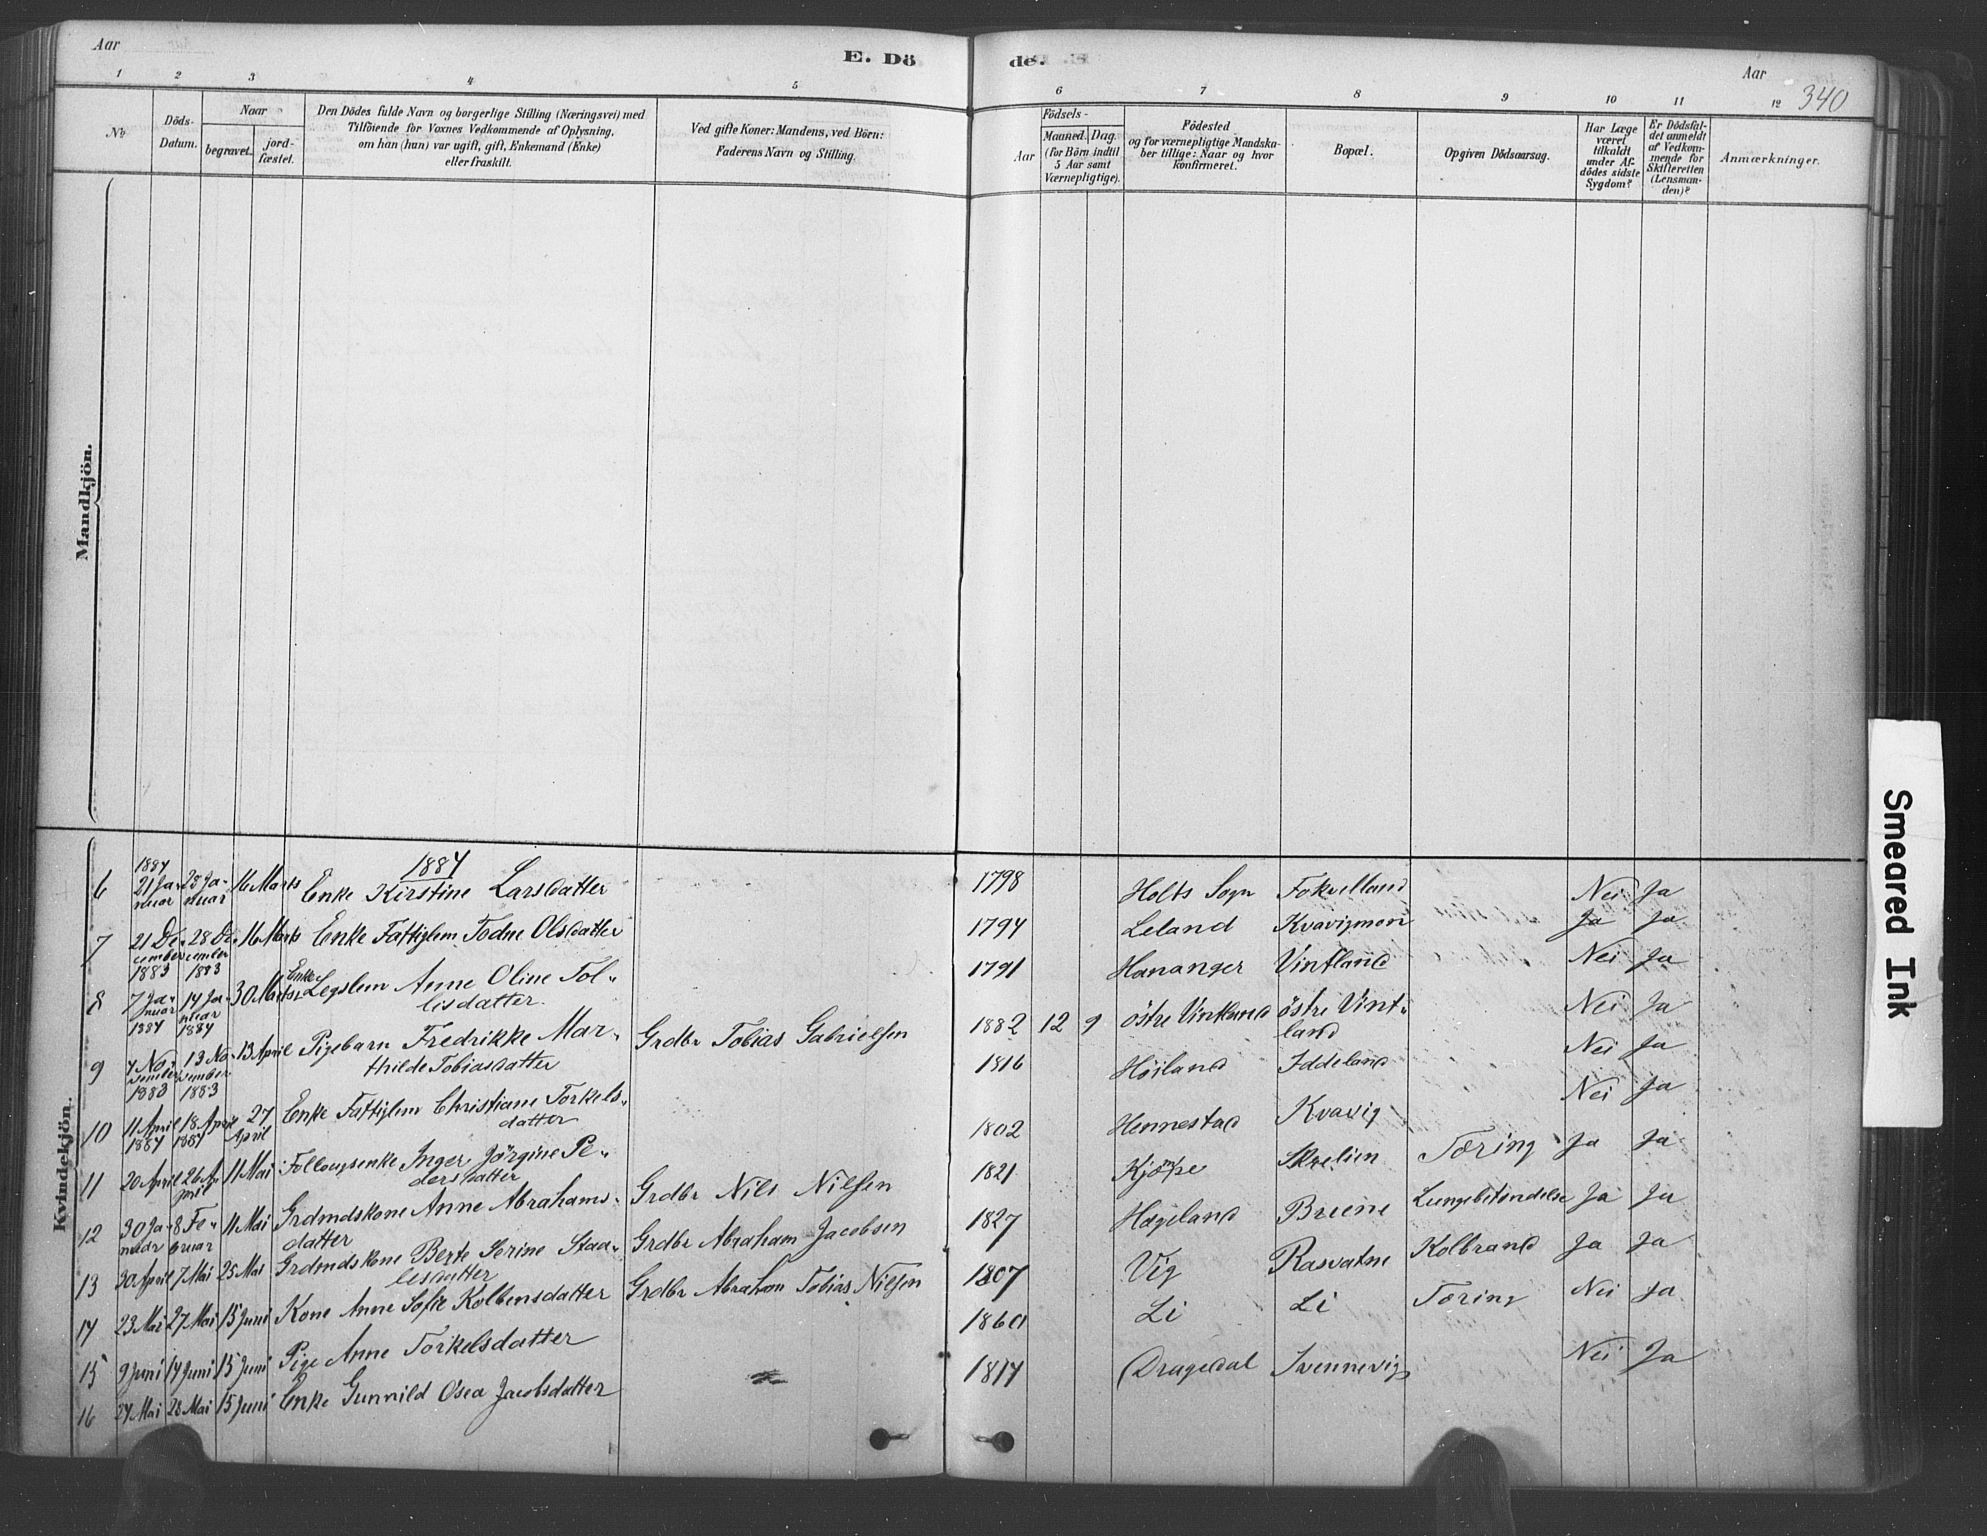 Aar
E. Dö
de.
Aar
340
1 2 3 4 5 6 7 8 9 10 11 12
No
Döds-
Datum.
Naar
begravet.
jord-
fæstet.
Den Dödes fulde Navn og borgerlige Stilling (Næringsvei) med
Tilföiende for Voxnes Vedkommende af Oplysning,
om han (hun) var ugift, gift, Enkemand (Enke)
eller fraskilt.
Ved gifte Koner: Mandens, ved Börn:
Faderens Navn og Stilling.
Födsels-
Aar
Maaned. Dag.
(for Börn indtil
5 Aar samt
Værnepligtige).
Födested
og for værnepligtige Mandska-
ber tillige: Naar og hvor
konfirmeret.
Bopæl.
Opgiven Dödsaarsag.
Har Læge
været
tilkaldt
under Af-
dödes sidste
Sygdom?
Er Dödsfal-
det anmeldt
af Vedkom-
mende for
Skifteretten
(Lensman-
den)?
Anmærkninger.
Mandkjön.
Kvindekjön.
1884
6 1884 21 Ja-nuar 28 Ja-nuar 16 Marts Enke Kirstine Larsdatter 1798 Holts Sogn Nei Ja
7 21 De-cember 1883 28 De-cember 1883 16 Marts Enke Fattiglem Todne Olsdatter 1794 Leland Kvavigmoen Ja Ja
8 7 Ja-nuar 1884 14 Ja-nuar 1884 30 Marts Enke Legslem Anne Oline Tol-
lisdatter 1791 Hananger Vintland Nei Ja
9 7 No-vember 1883 13 No-vember 1883 13 April Pigebarn Fredrikke Mar-
thilde Tobiasdatter Grdbr Tobias Gabrielsen 1882 12 9 östre Vintland östre Vint-
land Nei Ja
10 11 April 1884 18 April 1884 27 April Enke Fattiglem Christiane Torkels-
datter 1816 Höiland Iddeland Nei Ja
11 20 April 26 April 11 Mai Follougsenke Inger Jörgine Pe-
dersdatter 1802 Hennestad Kvavig Nei Ja
12 30 Ja-nuar 8 Fe-bruar 11 Mai Grdmdskone Anne Abrahams-
datter Grdbr Nils Nilsen 1821 Skrelien Tæring Ja Ja
13 30 April 7 Mai 25 Mai Grdmdskone Berte Serine Staa-
lesdatter Grdbr Abraham Jacobsen 1827 Hægeland Bruene Lungebetændelse Ja Ja
14 23 Mai 27 Mai 15 Juni Kone Anne Sofie Kolbensdatter Grdbr Abraham Tobias Nilsen 1807 Vig Rasvatne Kolbrand Ja Ja
15 9 Juni 14 Juni 15 Juni Pige Anne Torkelsdatter 1860 Li Li Tæring Nei Ja
16 24 Mai 28 Mai 15 Juni Enke Gunnild Osea Jacobsdatter 1814 Dragedal Svennevig Nei Ja
Smeared Ink